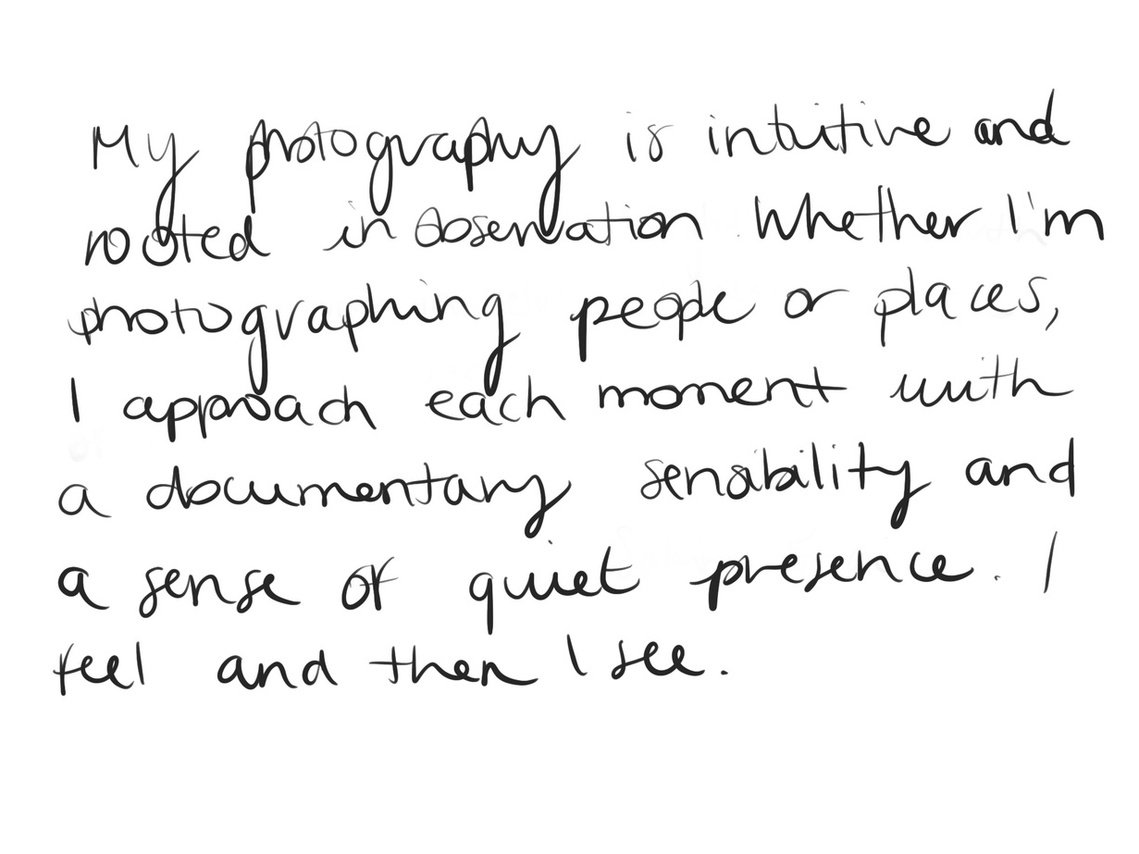 My photography is intuitive and
rooted in observation. Whether I'm
photographing people or places,
I approach each moment with
a documentary sensibility and
a sense of quiet presence. I
feel and then I see.